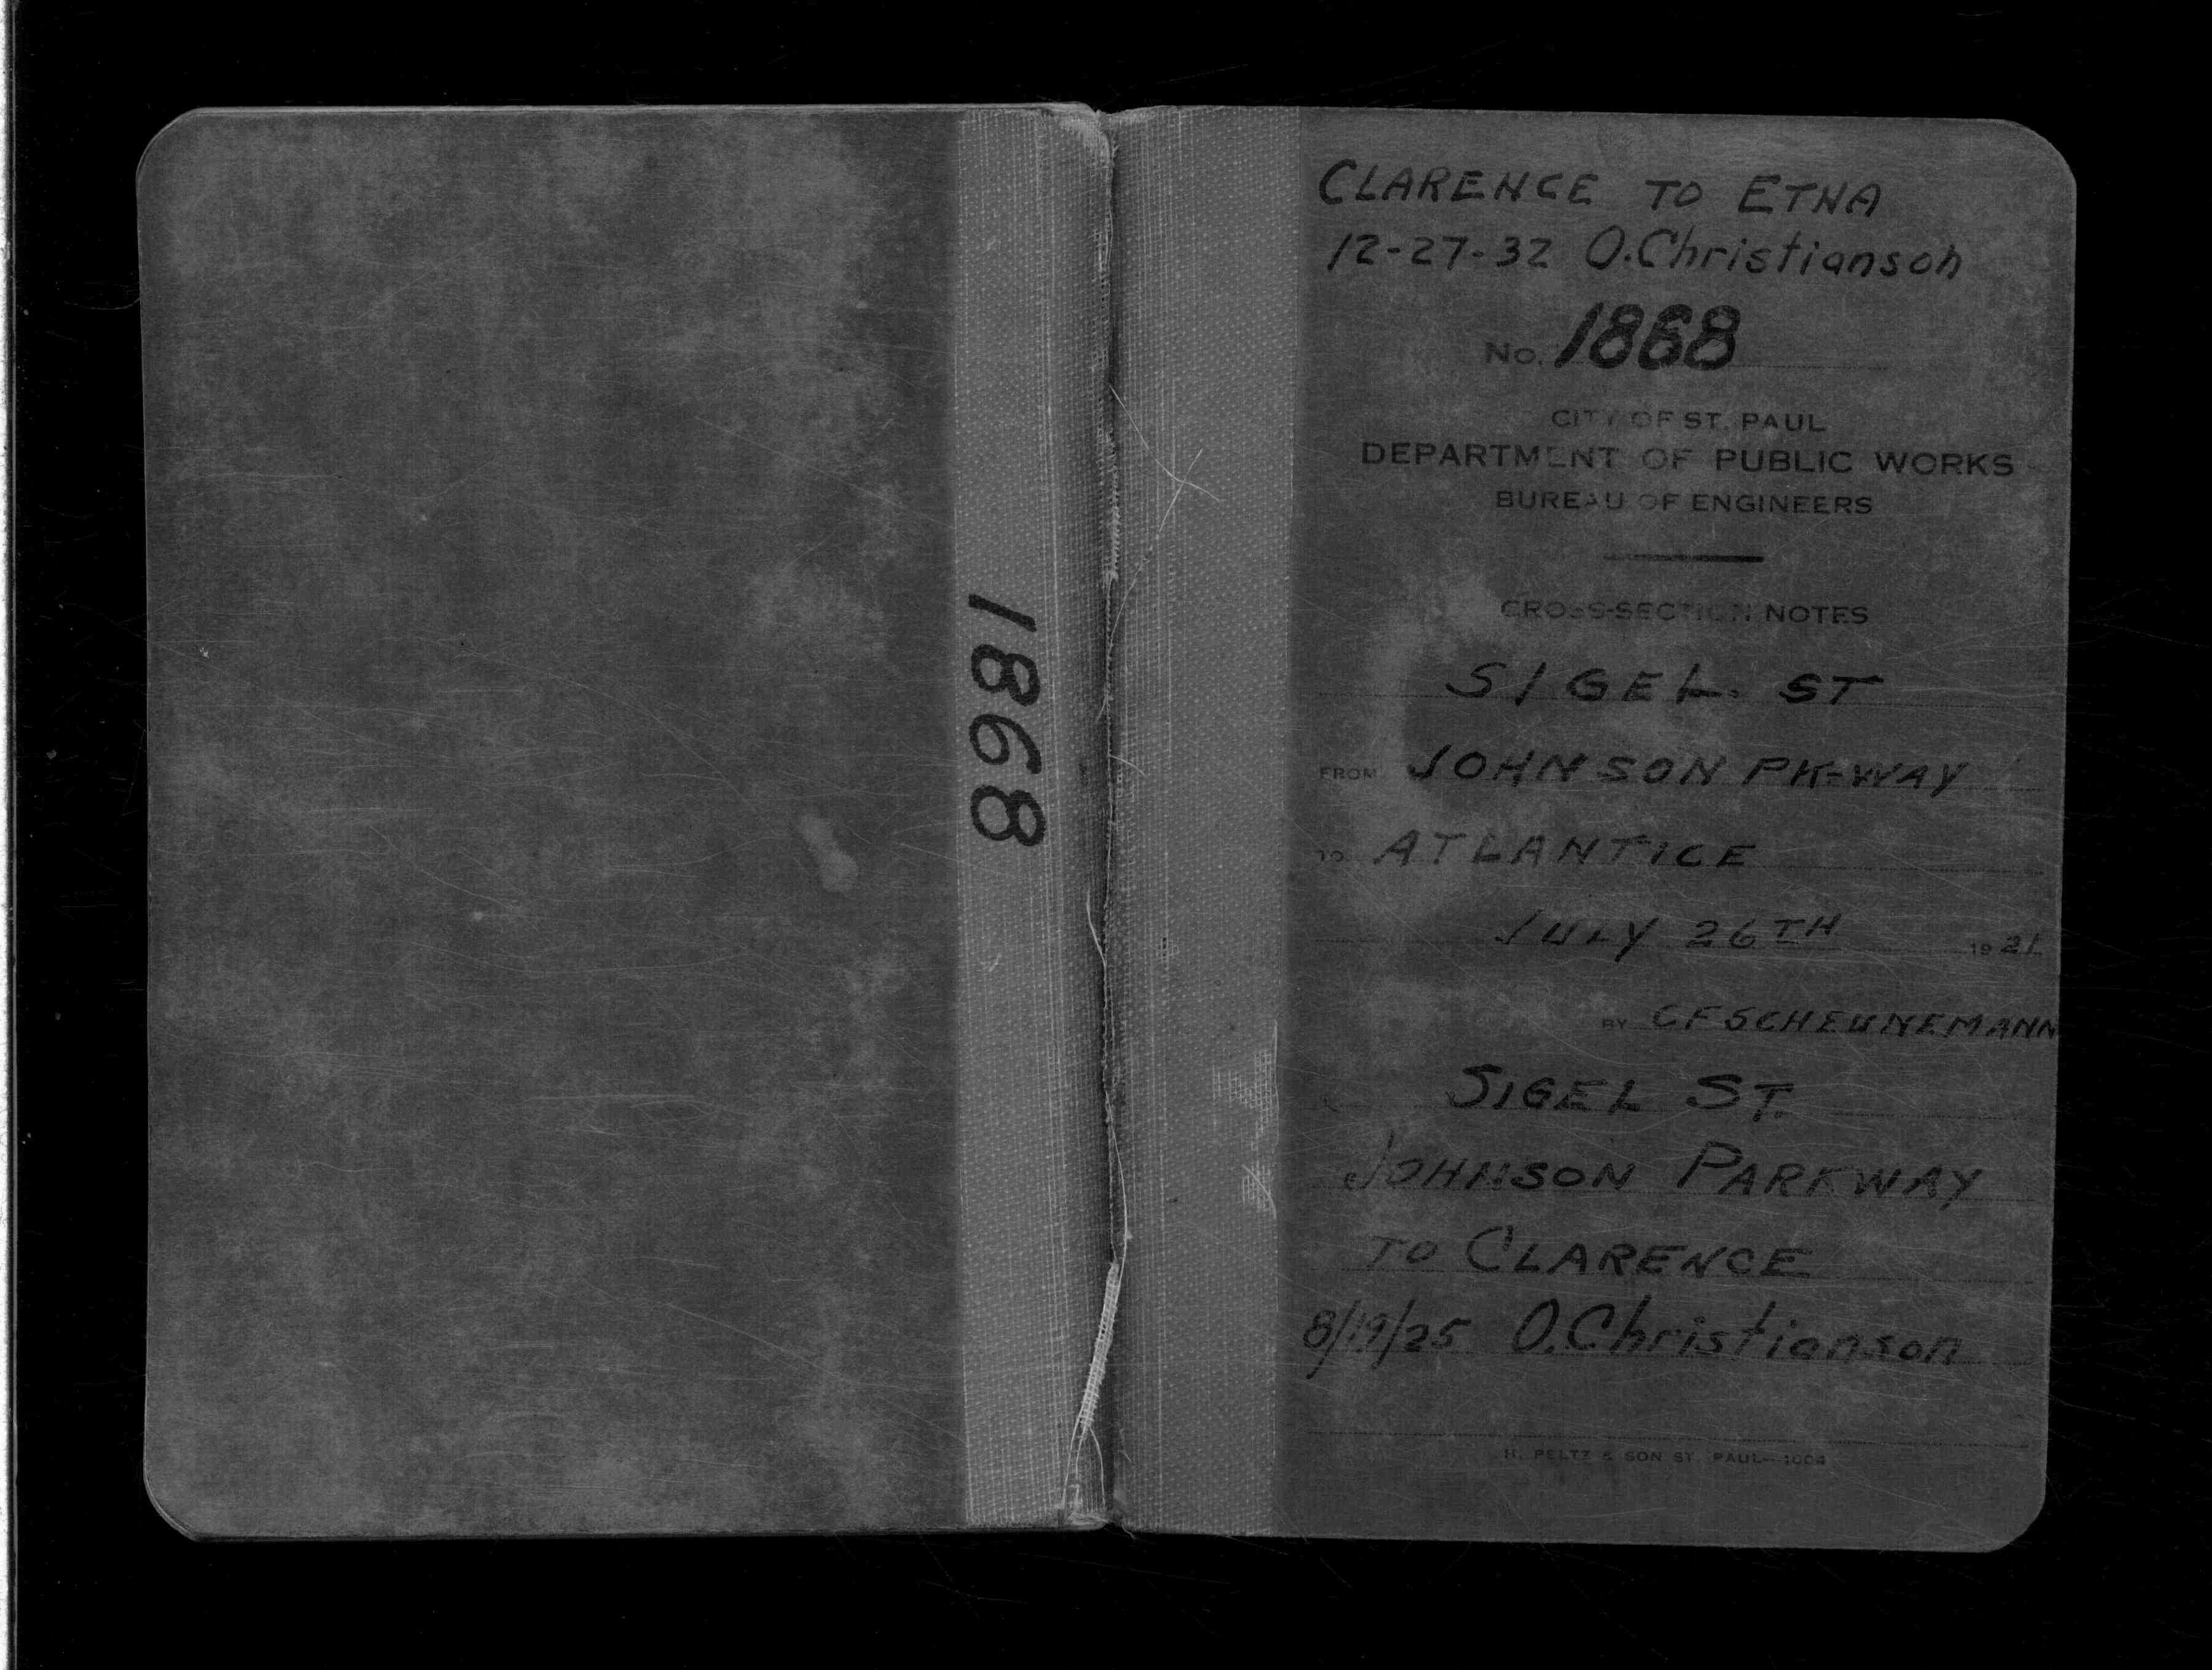 1868
CLARENCE TO ETNA
12-27-32 O.Christianson
No. 1868
CITY OF ST. PAUL
DEPARTMENT OF PUBLIC WORKS
BUREAU OF ENGINEERS
CROSS-SECTION NOTES
SIGEL. ST
FROM JOHNSON PK-WAY
TO ATLANTICE
JULY 26TH 1921
BY CFSCHEUNEMANN
SIGEL ST.
JOHNSON PARKWAY
TO CLARENCE
8/19/25 O.Christianson
H. PELTZ & SON ST. PAUL—1004